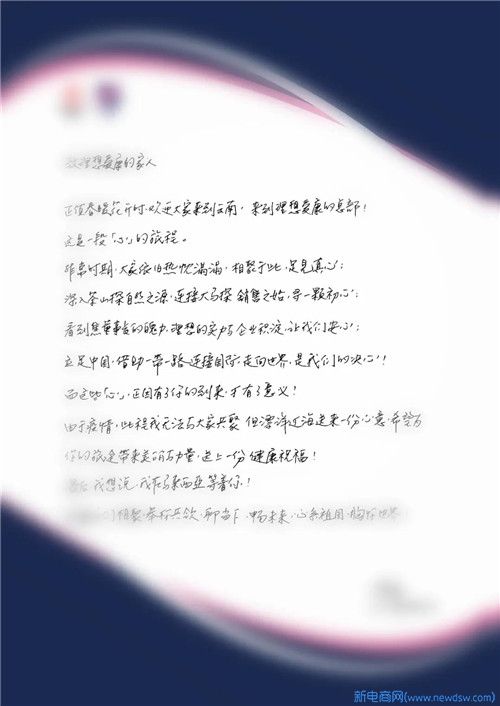 致理想爱康的家人
正值春暖花开时,欢迎大家来到云南,来到理想爱康的总部!
这是一段「心」的旅程。
非常时期,大家依旧热忱满满,相聚于此,足见真心;
深入茶山探自然之源,连接大马探销售之始,寻一颗初心;
看到焦董事长的魄力,理想的实力与企业积淀,让我们安心;
立足中国,借助一带一路,连接国际,走向世界,是我们的决心!
而这些「心」,正因有了你的到来,才有了意义!
由于疫情,此程我无法与大家共聚,但漂洋过海送来一份心意,希望为
你的旅途带来美好与力量,送上一份健康祝福!
我想说,我在马来西亚等着你!
相聚,举杯共饮,聊当下,畅未来,心系祖国,胸怀世界
新电商网(www.newdsw.com)